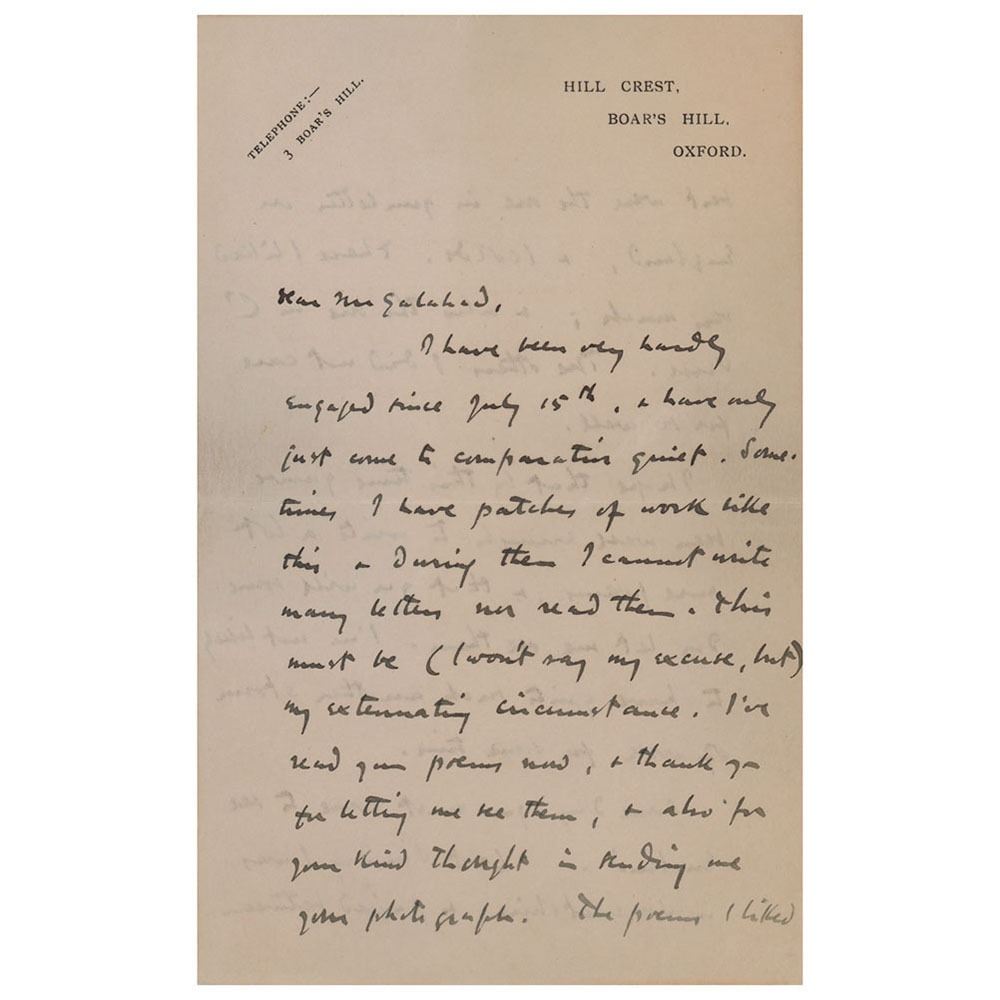 TELEPHONE:—
3 BOAR'S HILL.
HILL CREST,
BOAR'S HILL,
OXFORD.
Dear Mr Galahad,
I have been very hardly
engaged since July 15th, & have only
just come to comparative quiet. Some-
times I have patches of work like
this & During them I cannot write
many letters nor read them. This
must be (I won't say my excuse, but)
my extenuating circumstance. I've
read your poems now, & thank you
for letting me see them, & also for
your kind thought in sending me
your photograph. The poems I liked